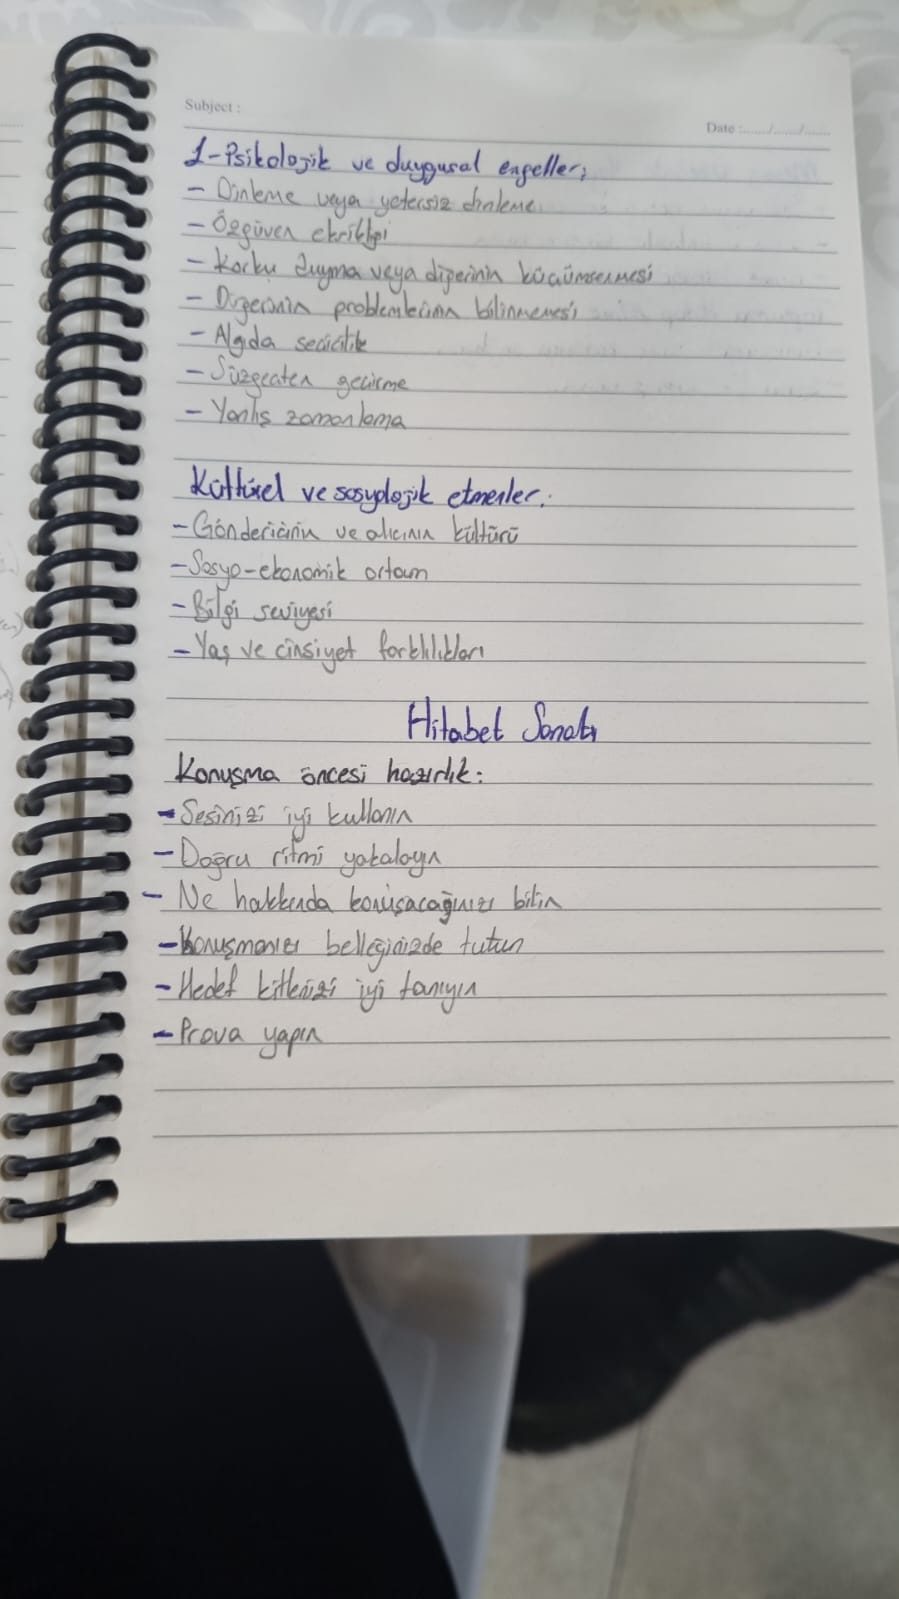 Subject :
Date :....../....../......
1-Psikolojik ve duygusal engeller;
- Dinleme veya yetersiz dinleme
- Özgüven eksikliği
- Korku duyma veya diğerinin küçümsenmesi
- Diğerinin problemlerinin bilinmemesi
- Algıda seçicilik
- Süzgeçten geçirme
- Yanlış zamanlama
Kültürel ve sosyolojik etmenler:
- Göndericinin ve alıcının kültürü
- Sosyo-ekonomik ortam
- Bilgi seviyesi
- Yaş ve cinsiyet farklılıkları
Hitabet Sanatı
Konuşma öncesi hazırlık:
- Sesinizi iyi kullanın
- Doğru ritmi yakalayın
- Ne hakkında konuşacağınızı bilin
- Konuşmanızı belleğinizde tutun
- Hedef kitlenizi iyi tanıyın
- Prova yapın